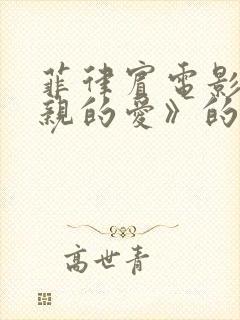 菲律宾电影
亲的爱》的
高世青